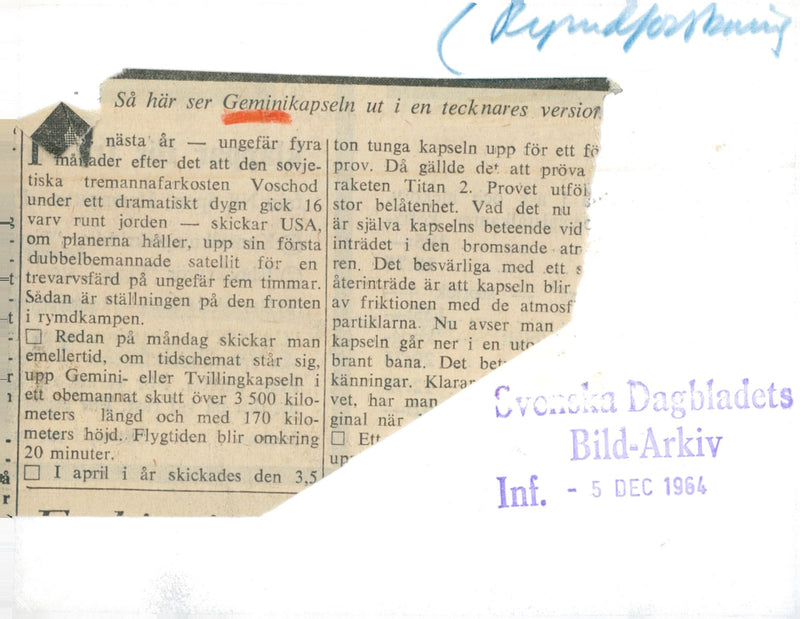 (Rymdforskning
Så här ser Geminikapseln ut i en tecknares version
I nästa år — ungefär fyra
månader efter det att den sovje-
tiska tremannafarkosten Voschod
under ett dramatiskt dygn gick 16
varv runt jorden — skickar USA,
om planerna håller, upp sin första
dubbelbemannade satellit för en
trevarvsfärd på ungefär fem timmar.
Sådan är ställningen på den fronten
i rymdkampen.
□ Redan på måndag skickar man
emellertid, om tidschemat står sig,
upp Gemini- eller Tvillingkapseln i
ett obemannat skutt över 3 500 kilo-
meters längd och med 170 kilo-
meters höjd. Flygtiden blir omkring
20 minuter.
□ I april i år skickades den 3,5
ton tunga kapseln upp för ett fö
prov. Då gällde det att pröva
raketen Titan 2. Provet utföl
stor belåtenhet. Vad det nu
är själva kapselns beteende vid
inträdet i den bromsande atm
ren. Det besvärliga med ett s
återinträde är att kapseln blir
av friktionen med de atmosf
partiklarna. Nu avser man
kapseln går ner i en uto
brant bana. Det bet
känningar. Klarar
vet, har man
ginal när
□ Ett
up
Svenska Dagbladets
Bild-Arkiv
Inf. - 5 DEC 1964